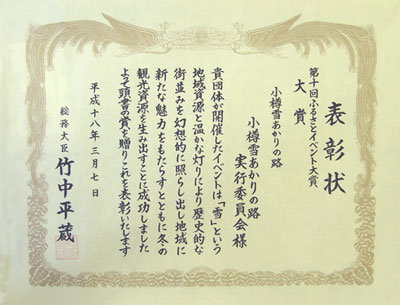 表彰状
第十回ふるさとイベント大賞
大賞
小樽雪あかりの路
小樽雪あかりの路
実行委員会様
貴団体が開催したイベントは「雪」という
地域資源と温かな灯りにより歴史的な
街並みを幻想的に照らし出し地域に
新たな魅力をもたらすとともに冬の
観光資源を生み出すことに成功しました
よって頭書の賞を贈りこれを表彰いたします
平成十八年三月七日
総務大臣 竹中平蔵